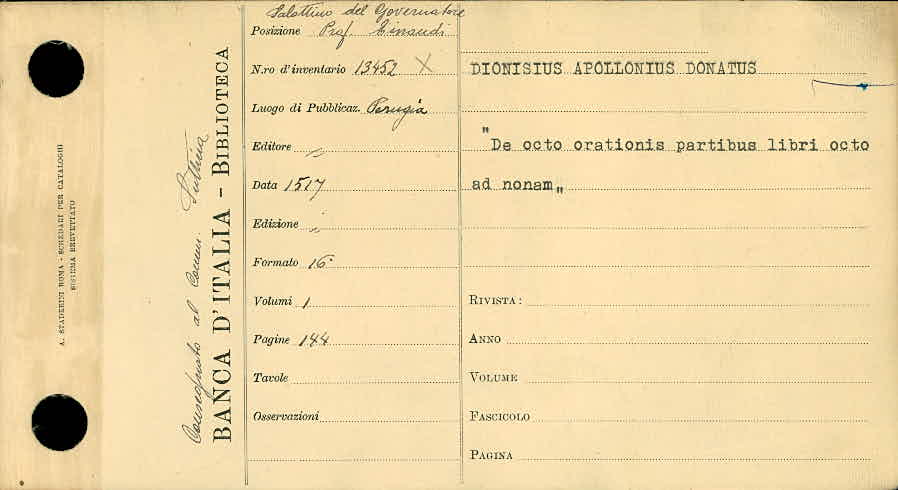 A. STADERINI ROMA - SCHEDARI PER CATALOGHI
SISTEMA BREVETTATO
Consegnato al Comm.
BANCA D'ITALIA - BIBLIOTECA
Salottino del Governatore
Posizione Prof. Einaudi
N.ro d'inventario 13452 X
Luogo di Pubblicaz. Perugia
Editore
Data 1517
Edizione
Formato 16°
Volumi 1
Pagine 144
Tavole
Osservazioni
DIONISIUS APOLLONIUS DONATUS
"De octo orationis partibus libri octo
ad nonam"
RIVISTA:
ANNO
VOLUME
FASCICOLO
PAGINA